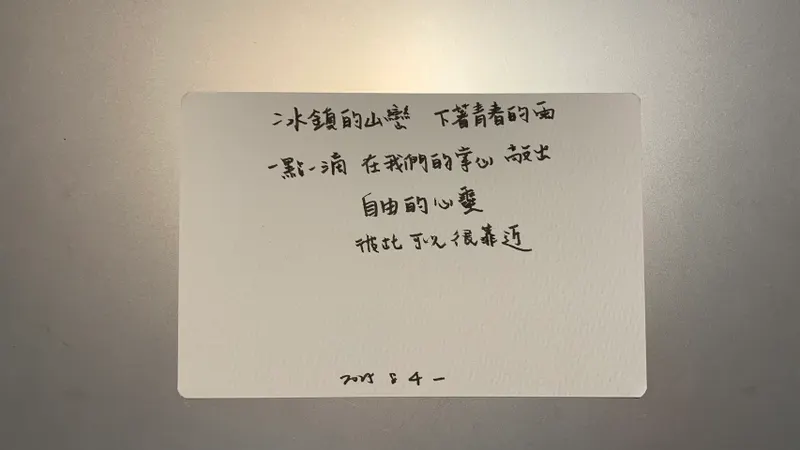 冰鎖的山巒 下著青春的雨
一點一滴 在我們的掌心 敲出
自由的心靈
彼此可以很靠近
2025 8 4 一